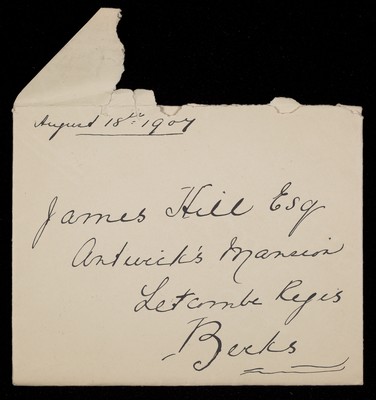 August 18th 1907
James Hill Esq
Antwick's Mansion
Letcombe Regis
Berks